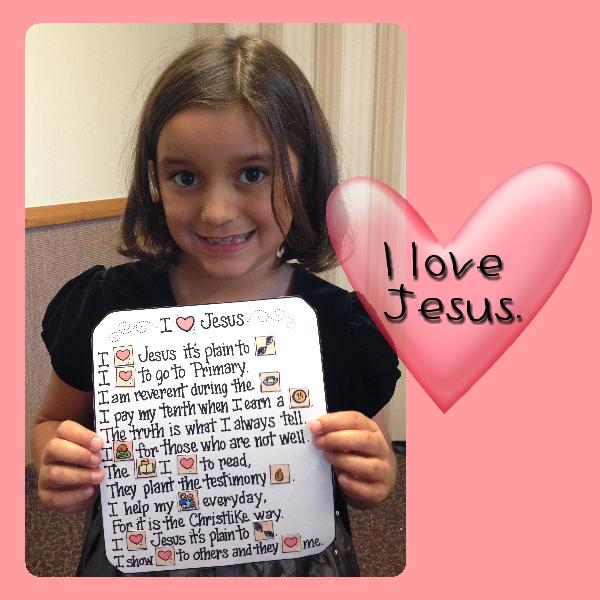 I ❤ Jesus
I ❤ Jesus it's plain to
I ❤ to go to Primary.
I am reverent during the
I pay my tenth when I earn a
The truth is what I always tell.
I for those who are not well.
The I ❤ to read,
They plant the testimony .
I help my everyday,
For it is the Christlike way.
I ❤ Jesus it's plain to .
I show ❤ to others and they ❤ me.
I love
Jesus.